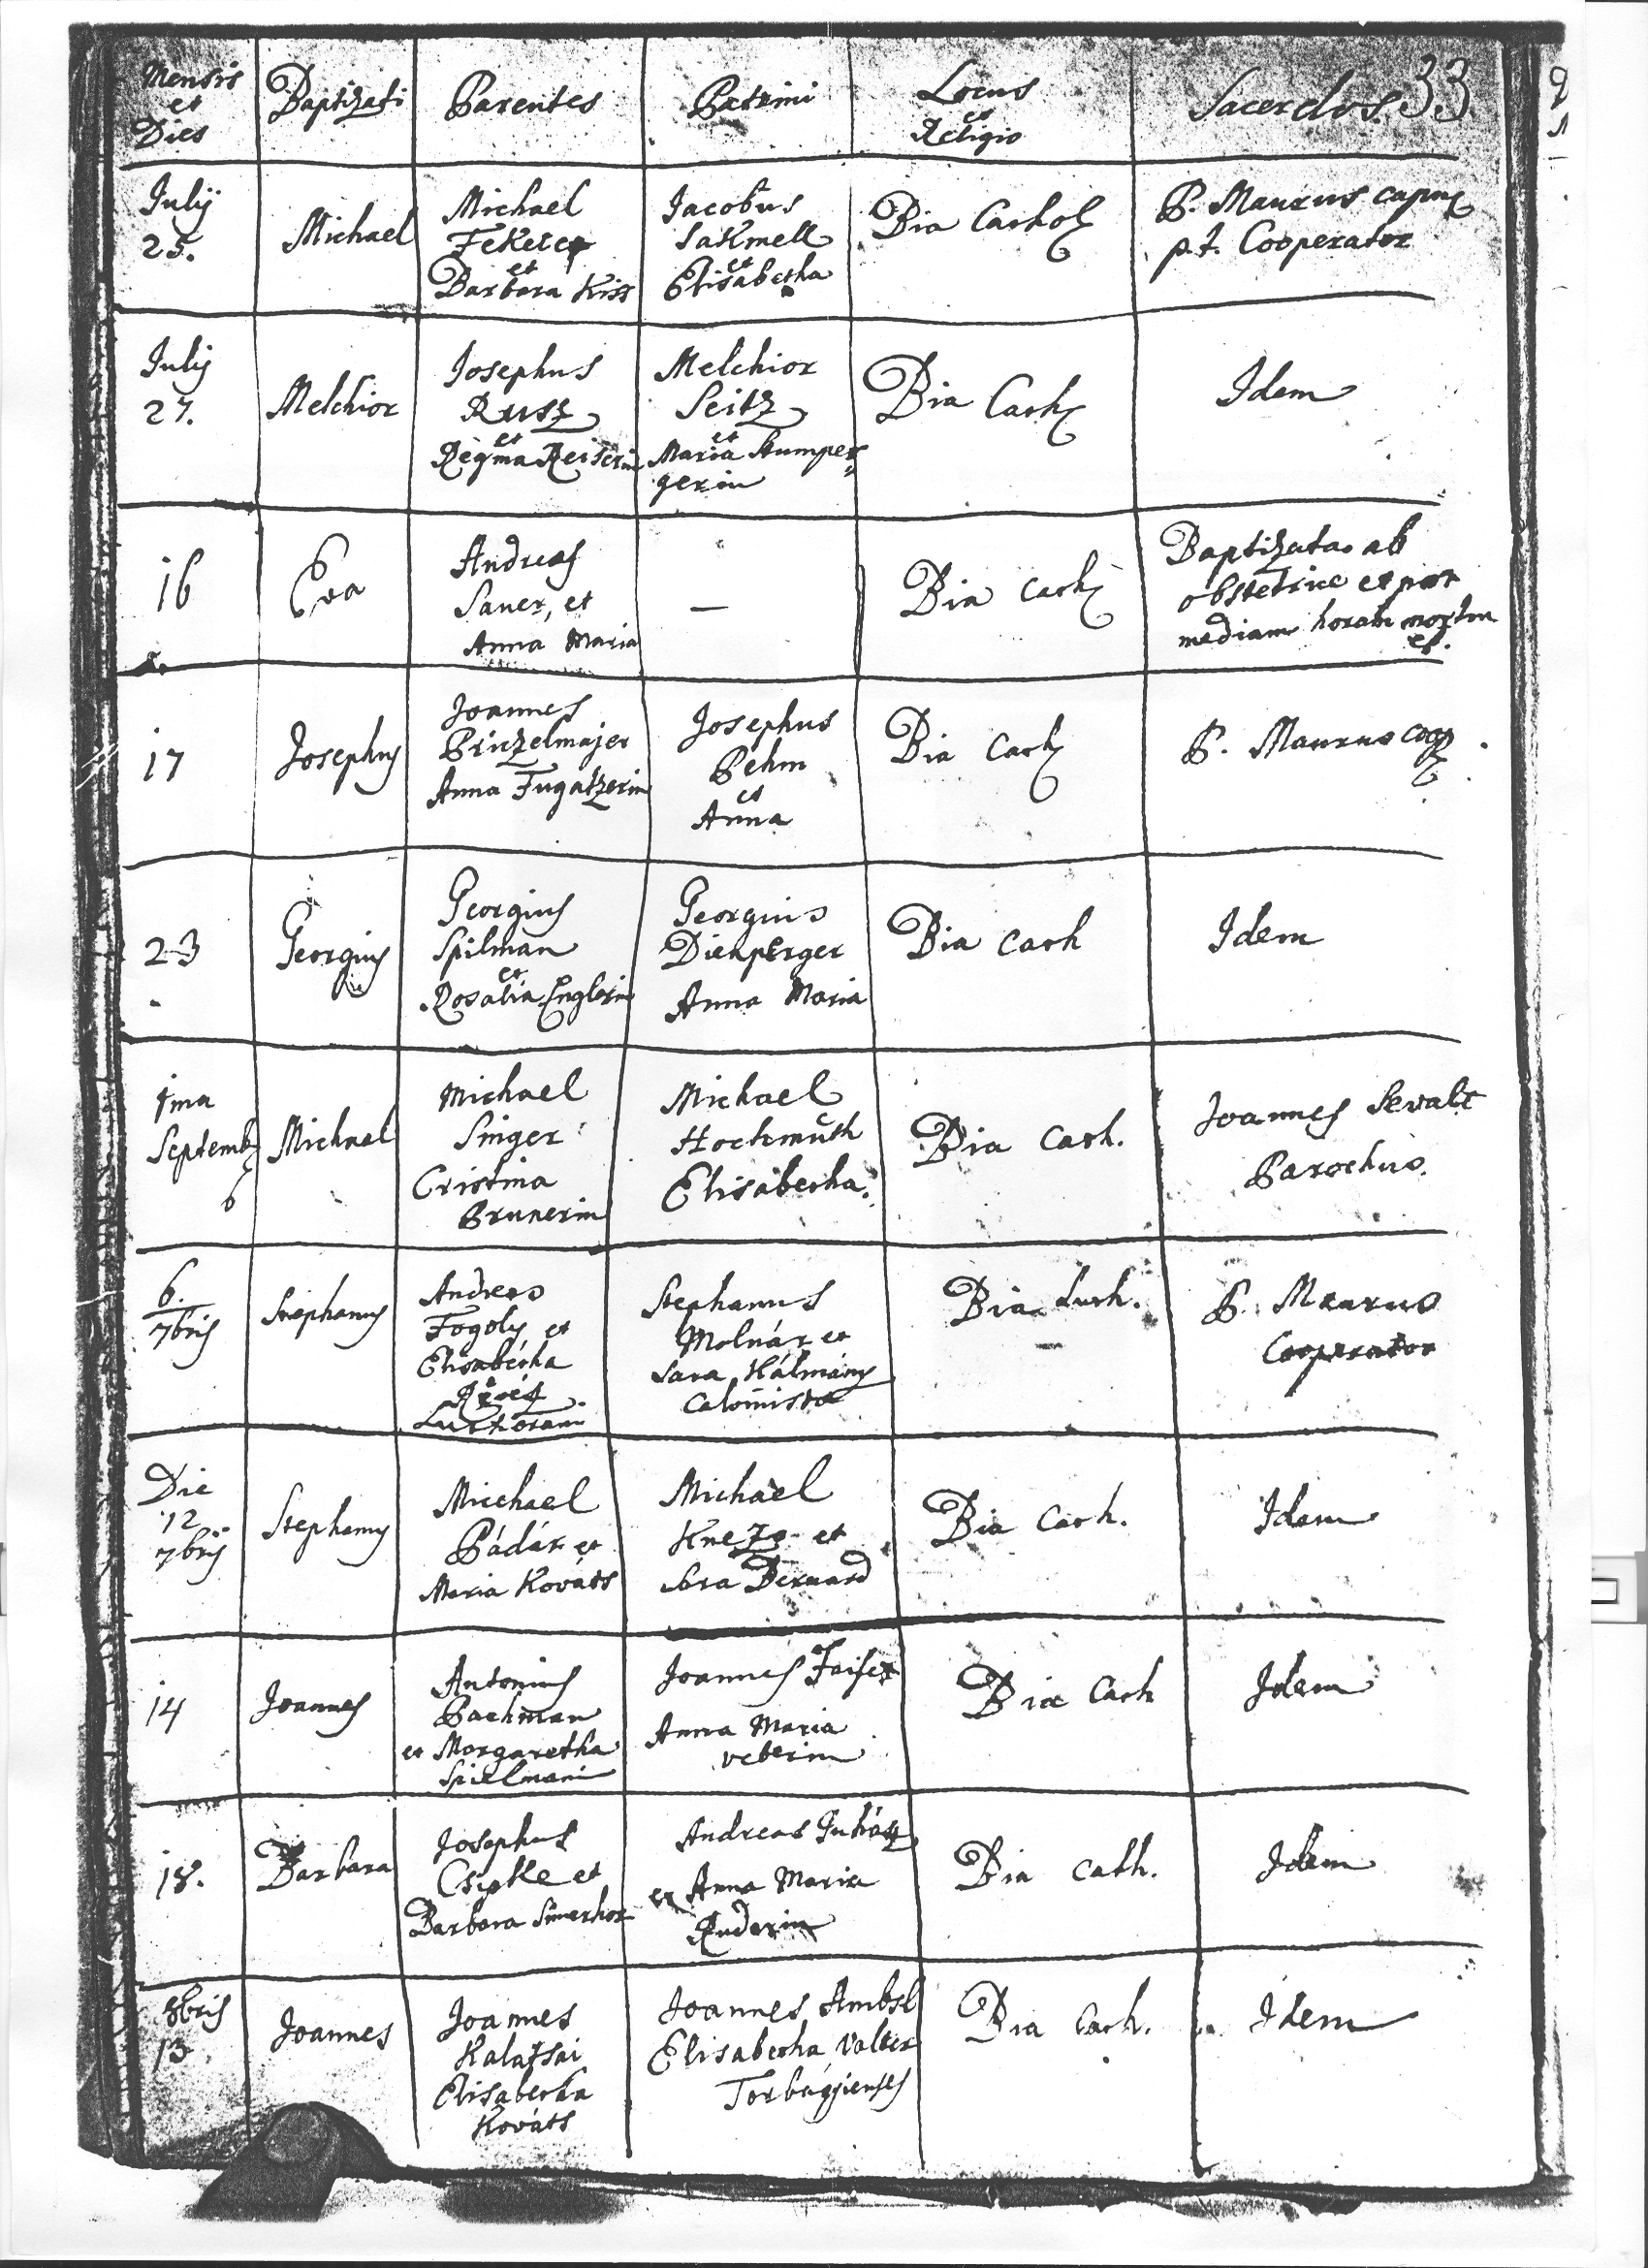 Mensis
et
Dies
Baptizati
Parentes
Patrini
Locus
et
Religio
Sacerdos
33
July
25.
Michael
Michael
Fekete
et
Barbara Kiss
Jacobus
Sakmell
et
Elisabetha
Bia Cathol
P. Maurus capuc
p.t. Cooperator
July
27.
Melchior
Josephus
Rusz
et
Regina Reiserin
Melchior
Seitz
et
Maria Stumper
gerin
Bia Cath
Idem
16
Eva
Andreas
Saner, et
Anna Maria
—
Bia Cath
Baptizata ab
obstetrice et post
mediam horam mortua
est.
17
Josephus
Joannes
Prinzelmajer
Anna Fugatzerin
Josephus
Pehm
et
Anna
Bia Cath
P. Maurus
23
Georgius
Georgius
Spilman
et
Rosalia Englerin
Georgius
Dienperger
Anna Maria
Bia Cath
Idem
1ma
Septemb
Michael
Michael
Singer
Cristina
Brunerin
Michael
Hochmuth
Elisabetha
Bia Cath.
Joannes Sevalt
Parochus.
6.
7bris
Stephanus
Andreas
Fogoly et
Elisabetha
Lutheran
Stephanus
Molnár et
Sara Kálmány
Calvinista
Bia Luth.
P. Maurus
Cooperator
Die
12
7bris
Stephanus
Michael
Pádár et
Maria Kováts
Michael
Knezo et
Sara Bernard
Bia Cath.
Idem
14
Joannes
Antonius
Pachman
et Margaretha
Spielmani
Joannes Faiser
Anna Maria
veberin
Bia Cath
Idem
18.
Barbara
Josephus
Csipke et
Barbara Simerhor
Andreas Juhász
et Anna Maria
Ruderin
Bia Cath.
Idem
8bris
13
Joannes
Joannes
Kalatsai
Elisabetha
Kováts
Joannes Ambsl
Elisabetha Valter
Torbágyienses
Bia Cath.
Idem